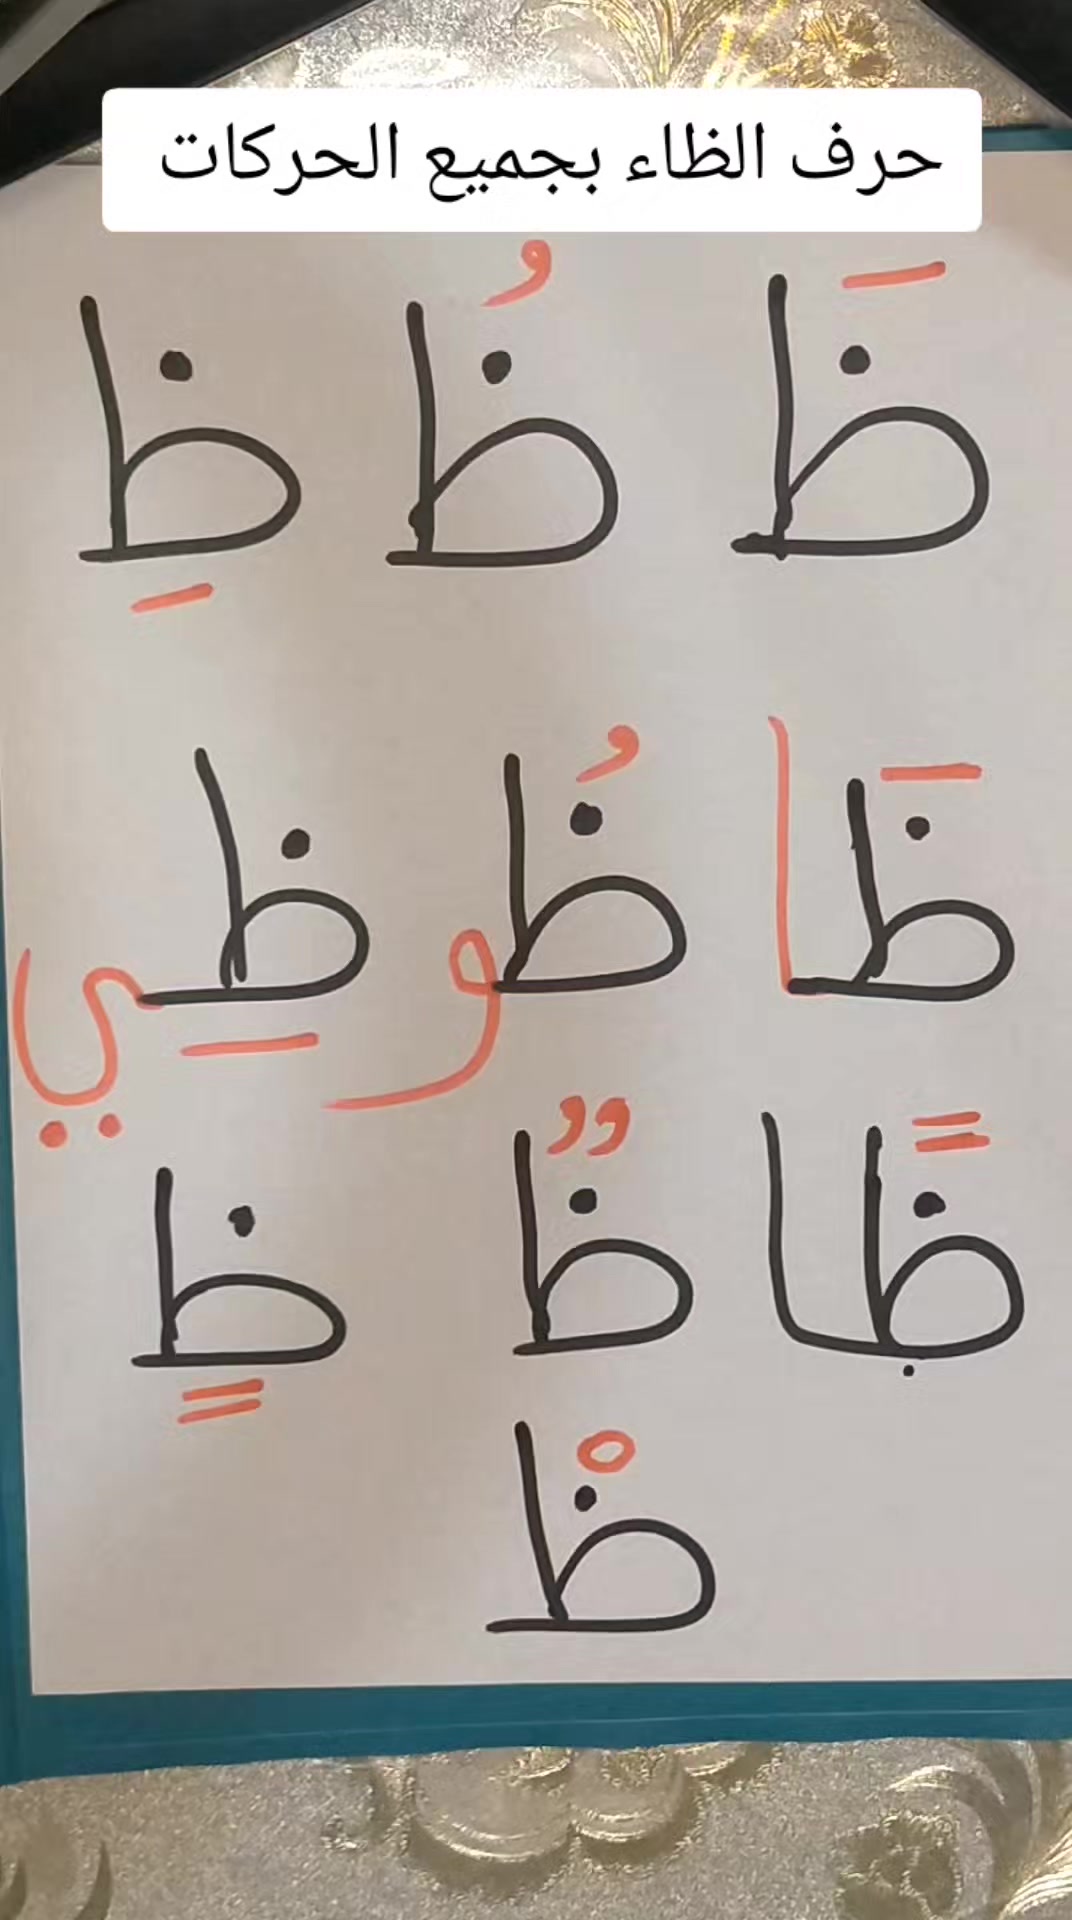 حرف الظاء بجميع الحركات
ظَ ظُ ظِ
ظَا ظُو ظِي
ظًا ظٌ ظٍ
ظْ